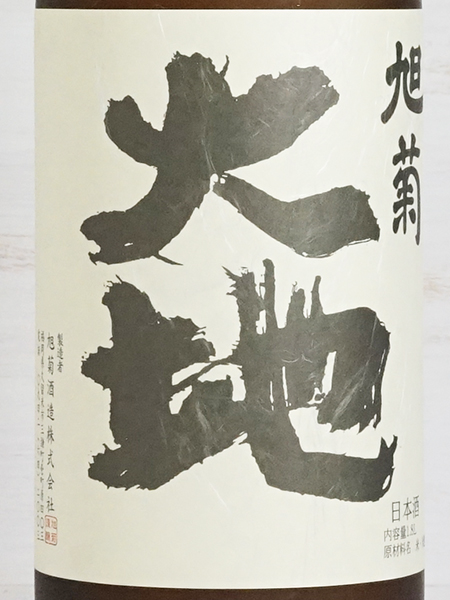 旭菊
大地
日本酒
内容量1.8L
原材料名 米・
製造者
旭菊酒造株式会社